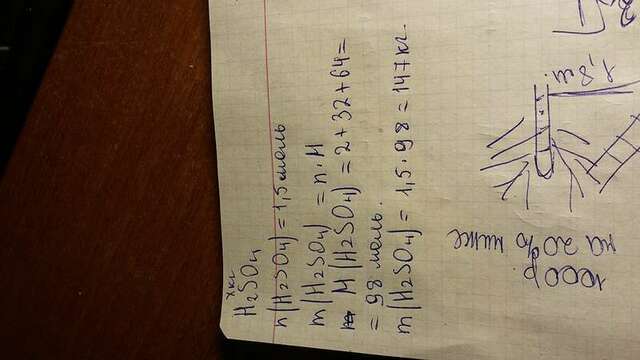 x кг
H₂SO₄
n(H₂SO₄) = 1,5 моль
m(H₂SO₄) = n·M
M(H₂SO₄) = 2+32+64=
= 98 моль.
m(H₂SO₄) = 1,5·98 = 147 кг.
1000 р.
на 20% ниже
1,8 м.